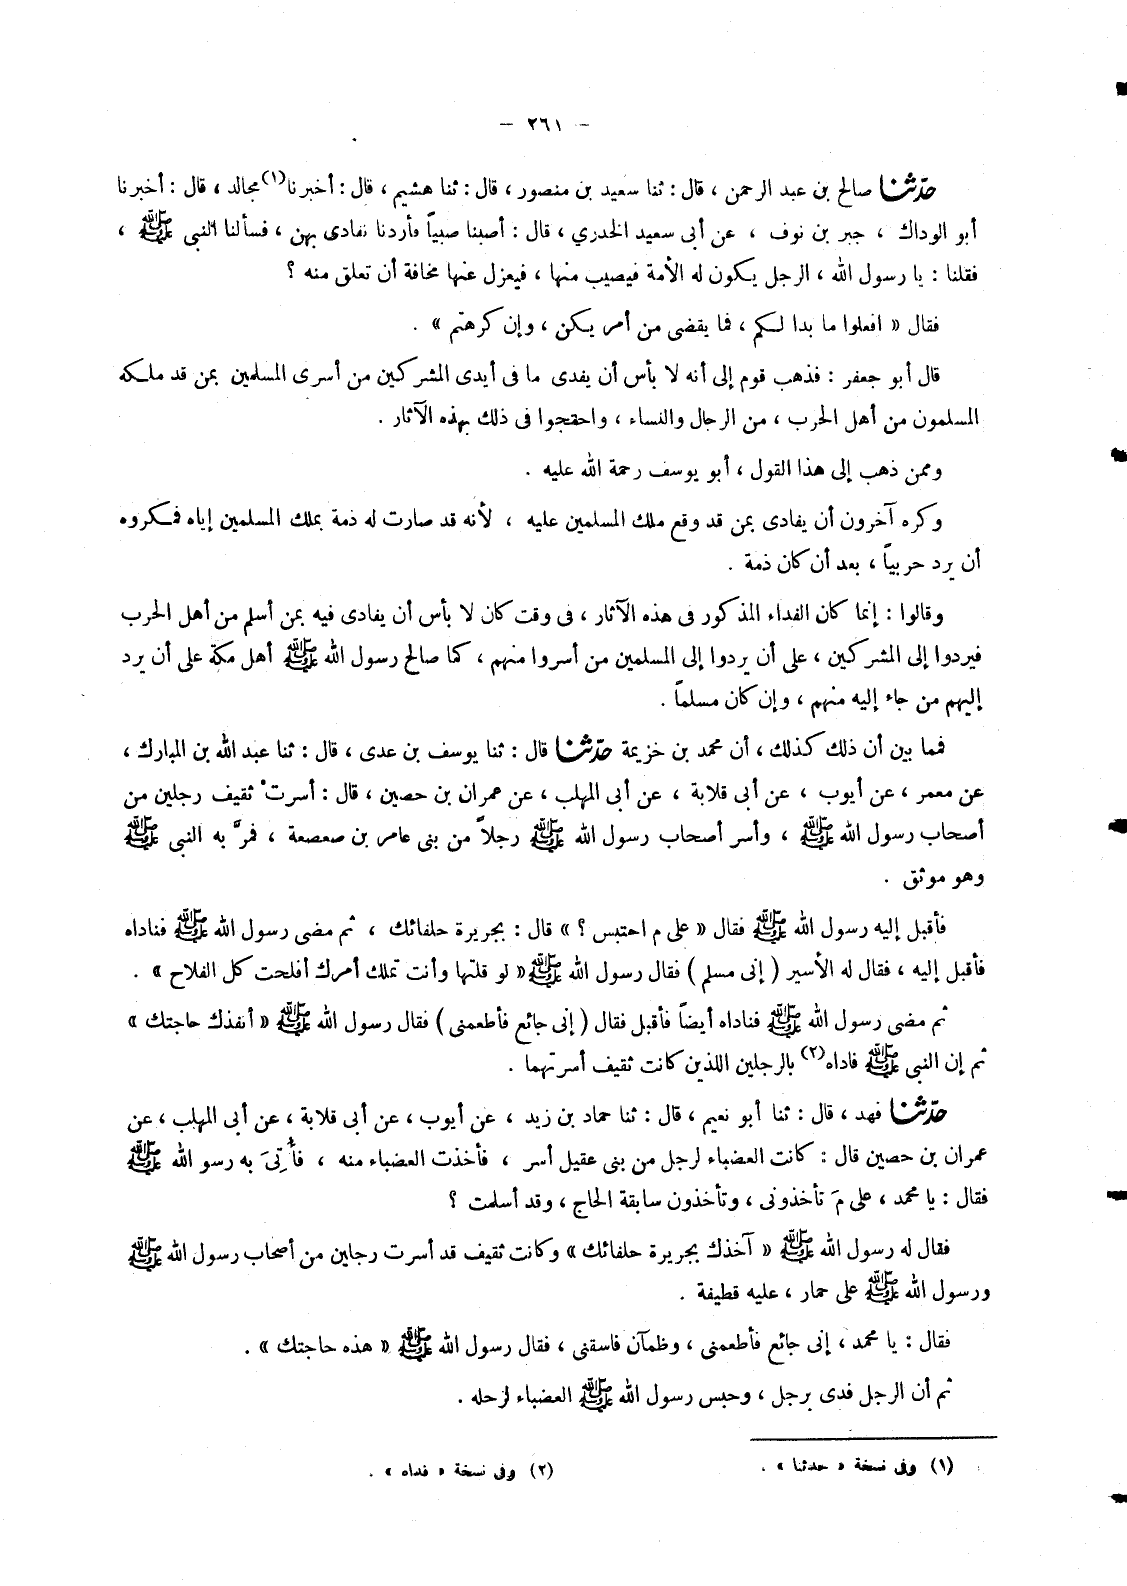 – ٢٦١ –
حدّثنا صالح بن عبد الرحمن ، قال : ثنا سعيد بن منصور ، قال : ثنا هشيم ، قال : أخبرنا(١) مجالد ، قال : أخبرنا
أبو الوداك ، جبر بن نوف ، عن أبى سعيد الخدري ، قال : أصبنا صبياً فأردنا نفادى بهن ، فسألنا النبى ﷺ ،
فقلنا : يا رسول الله ، الرجل يكون له الأمة فيصيب منها ، فيعزل عنها مخافة أن تعلق منه ؟
فقال « افعلوا ما بدا لكم ، فما يقضى من أمر يكن ، وإن كرهتم » .
قال أبو جعفر : فذهب قوم إلى أنه لا بأس أن يفدى ما فى أيدى المشركين من أسرى المسلمين بمن قد ملكه
المسلمون من أهل الحرب ، من الرجال والنساء ، واحتجوا فى ذلك بهذه الآثار .
وممن ذهب إلى هذا القول ، أبو يوسف رحمة الله عليه .
وكره آخرون أن يفادى بمن قد وقع ملك المسلمين عليه ، لأنه قد صارت له ذمة بملك المسلمين إياه فمكروه
أن يرد حربياً ، بعد أن كان ذمة .
وقالوا : إنما كان الفداء المذكور فى هذه الآثار ، فى وقت كان لا بأس أن يفادى فيه بمن أسلم من أهل الحرب
فيردوا إلى المشركين ، على أن يردوا إلى المسلمين من أسروا منهم ، كما صالح رسول الله ﷺ أهل مكة على أن يرد
إليهم من جاء إليه منهم ، وإن كان مسلماً .
فمما بين أن ذلك كذلك ، أن محمد بن خزيمة حدّثنا قال : ثنا يوسف بن عدى ، قال : ثنا عبد الله بن المبارك ،
عن معمر ، عن أيوب ، عن أبى قلابة ، عن أبى المهلب ، عن عمران بن حصين ، قال : أسرتْ ثقيف رجلين من
أصحاب رسول الله ﷺ ، وأسر أصحاب رسول الله ﷺ رجلاً من بنى عامر بن صعصعة ، فمرَّ به النبى ﷺ
وهو موثق .
فأقبل إليه رسول الله ﷺ فقال « على م احتبس ؟ » قال : بجريرة حلفائك ، ثم مضى رسول الله ﷺ فناداه
فأقبل إليه ، فقال له الأسير ( إنى مسلم ) فقال رسول الله ﷺ « لو قلتها وأنت تملك أمرك أفلحت كل الفلاح » .
ثم مضى رسول الله ﷺ فناداه أيضاً فأقبل فقال ( إنى جائع فأطعمنى ) فقال رسول الله ﷺ « أنفذك حاجتك »
ثم إن النبى ﷺ فاداه(٢) بالرجلين اللذين كانت ثقيف أسرتهما .
حدّثنا فهد ، قال : ثنا أبو نعيم ، قال : ثنا حماد بن زيد ، عن أيوب ، عن أبى قلابة ، عن أبى المهلب ، عن
عمران بن حصين قال : كانت العضباء لرجل من بنى عقيل أسر ، فأخذت العضباء منه ، فأُتِىَ به رسو الله ﷺ
فقال : يا محمد ، على مَ تأخذونى ، وتأخذون سابقة الحاج ، وقد أسلمت ؟
فقال له رسول الله ﷺ « آخذك بجريرة حلفائك » وكانت ثقيف قد أسرت رجلين من أصحاب رسول الله ﷺ
ورسول الله ﷺ على حمار ، عليه قطيفة .
فقال : يا محمد ، إنى جائع فأطعمنى ، وظمآن فاسقنى ، فقال رسول الله ﷺ « هذه حاجتك » .
ثم أن الرجل فدى برجل ، وحبس رسول الله ﷺ العضباء لرحله .
(١) وفى نسخة « حدثنا » .
(٢) وفى نسخة « فداه » .